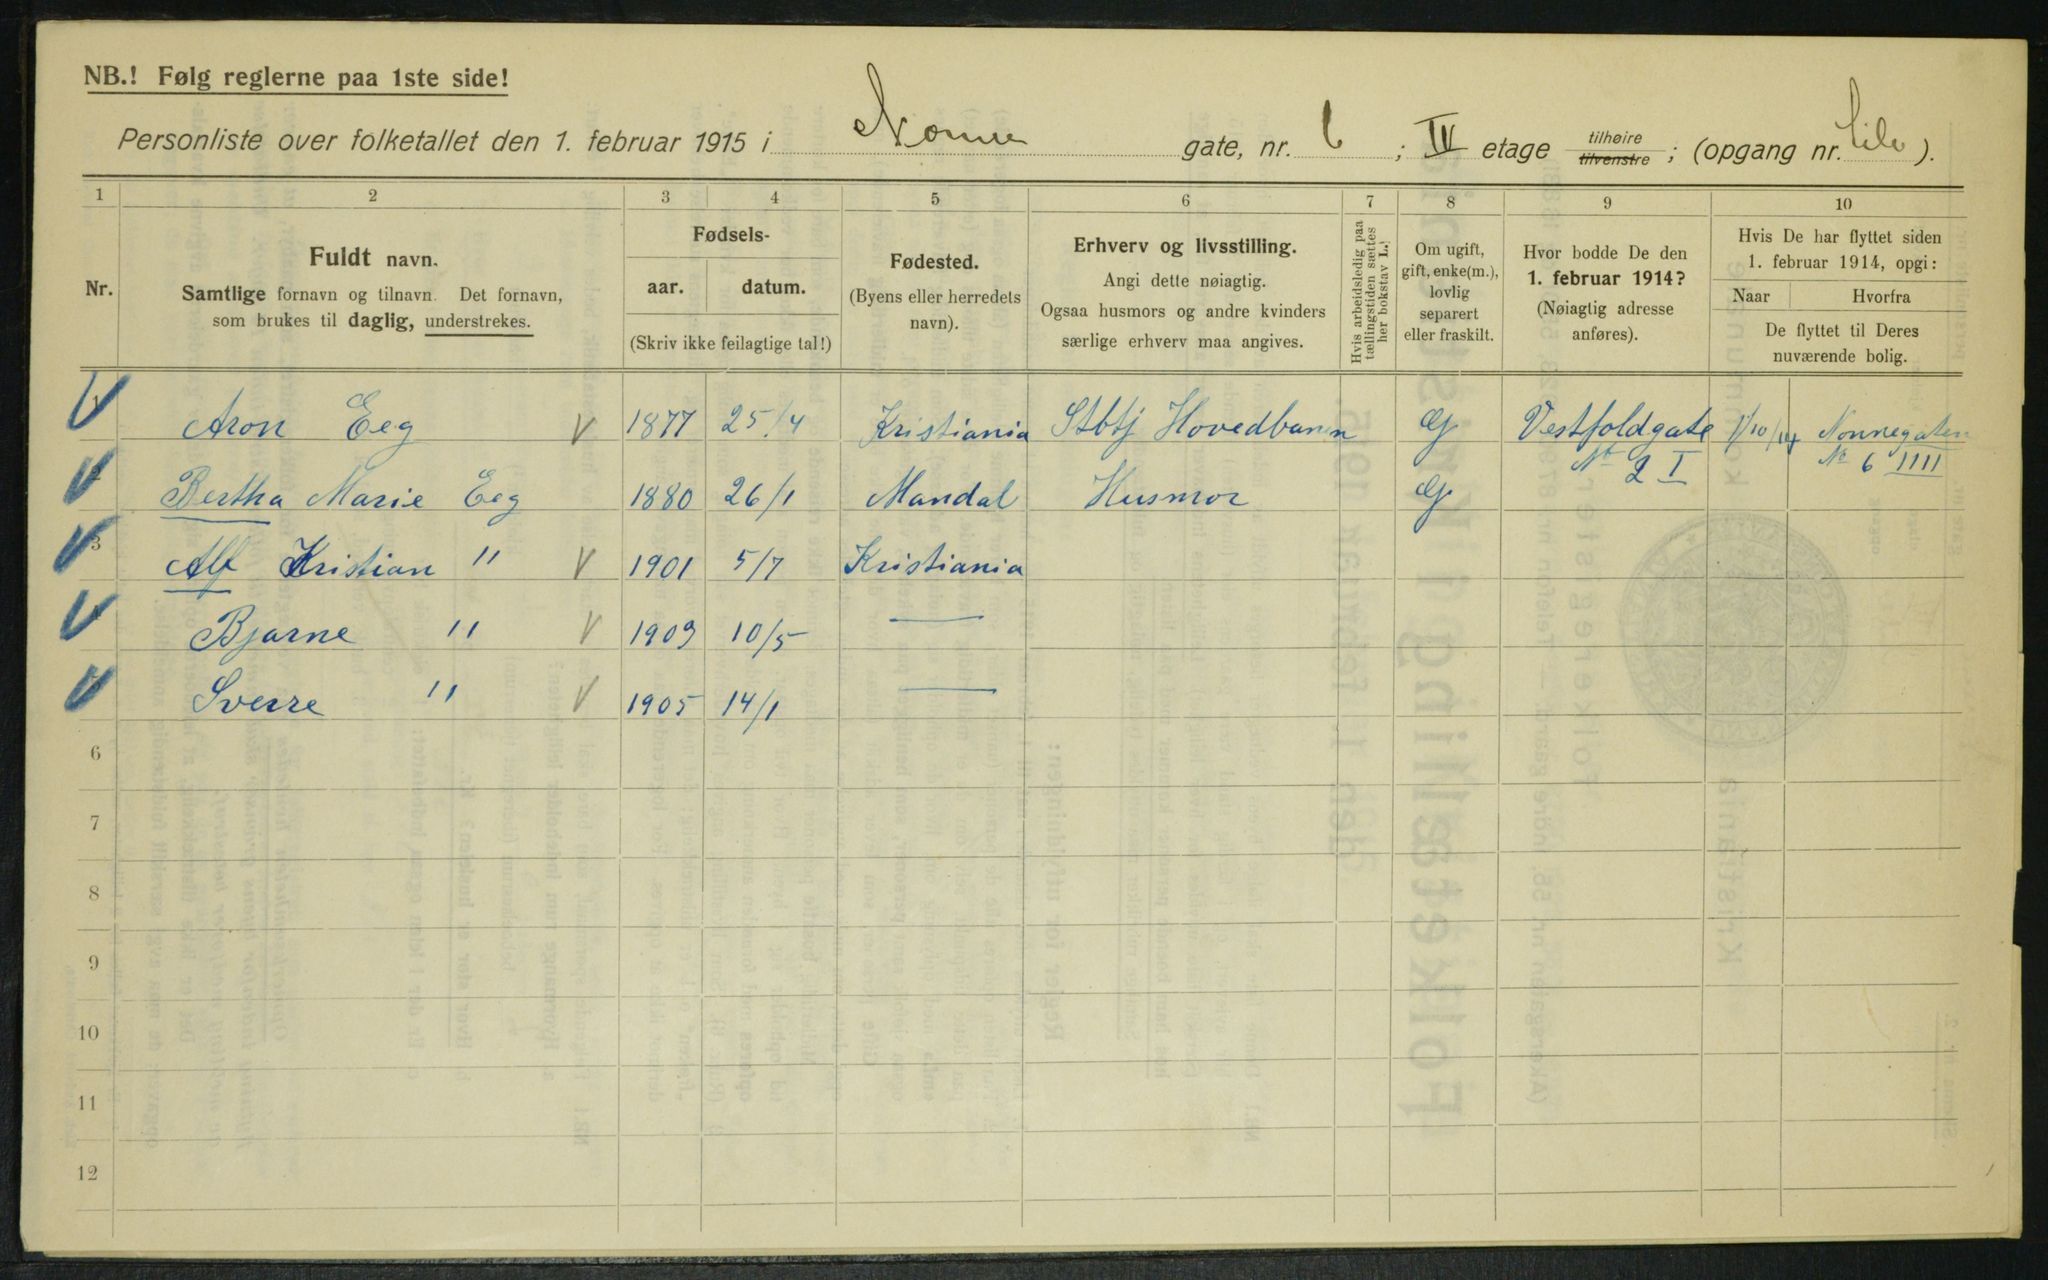 NB.! Følg reglerne paa 1ste side!
Personliste over folketallet den 1. februar 1915 i Nonne gate, nr. 6 ; IV etage tilhøire tilvenstre ; (opgang nr. ).
1 2 3 4 5 6 7 8 9 10
Nr.
Fuldt navn.
Samtlige fornavn og tilnavn. Det fornavn, som brukes til daglig, understrekes.
Fødsels-
aar. datum.
(Skriv ikke feilagtige tal!)
Fødested.
(Byens eller herredets navn).
Erhverv og livsstilling.
Angi dette nøiagtig.
Ogsaa husmors og andre kvinders særlige erhverv maa angives.
Hvis arbeidsledig paa tællingstiden sættes her bokstav L.!
Om ugift, gift, enke(m.), lovlig separert eller fraskilt.
Hvor bodde De den 1. februar 1914?
(Nøiagtig adresse anføres).
Hvis De har flyttet siden 1. februar 1914, opgi:
Naar Hvorfra
De flyttet til Deres nuværende bolig.
1 Aron Eeg 1877 25/4 Kristiania Stbtj Hovedbanen G Vestfoldgate No 2 I 1/10/14 Nonnegaten No 6 IIII
2 Bertha Marie Eeg 1880 26/1 Mandal Husmor G
3 Alf Kristian " 1901 5/7 Kristiania
4 Bjarne " 1903 10/5 —
Sverre " 1905 14/1 —
6
7
8
9
10
11
12